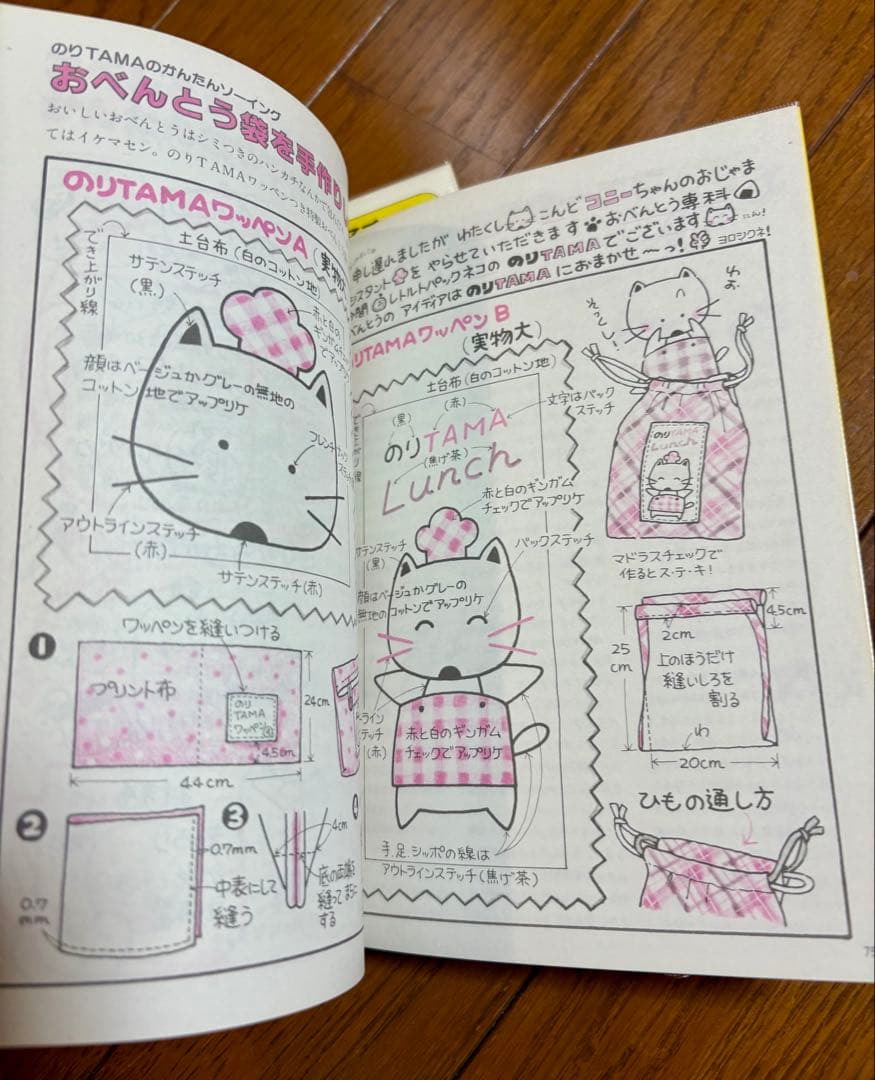 のりTAMAのかんたんソーイング
おべんとう袋を手作り
おいしいおべんとうはシミつきのハンカチなんかで
てはイケマセン。のりTAMAワッペンつき特製
のりTAMAワッペンA
でき上がり線
土台布(白のコットン地)
サテンステッチ
(黒)
赤と白の
顔はベージュかグレーの無地の
コットン地でアップリケ
アウトラインステッチ
(赤)
サテンステッチ(赤)
❶
ワッペンを縫いつける
プリント布
のり
TAMA
ワッペン
24cm
4.5cm
44cm
❷
0.7mm
中表にして
縫う
0.7
mm
❸
4cm
縫って
する
申し遅れましたが わたくし こんど コニーちゃんのおじゃま
をやらせていただきます おべんとう専科
レトルトパックネコの のりTAMAでございます
アイディアは のりTAMA におまかせ〜っ! ヨロシクネ!
TAMAワッペンB
(実物大)
土台布(白のコットン地)
(黒)
(赤)
文字はバック
ステッチ
のりTAMA
(焦げ茶)
Lunch
赤と白のギンガム
チェックでアップリケ
サテンステッチ
(黒)
バックステッチ
顔はベージュかグレーの
無地のコットンでアップリケ
ライン
(赤)
赤と白のギンガム
チェックでアップリケ
手.足.シッポの線は
アウトラインステッチ(焦げ茶)
のりTAMA
Lunch
マドラスチェックで
作るとス・テ・キ!
4.5cm
2cm
25
cm
上のほうだけ
縫いしろを
割る
わ
20cm
ひもの通し方